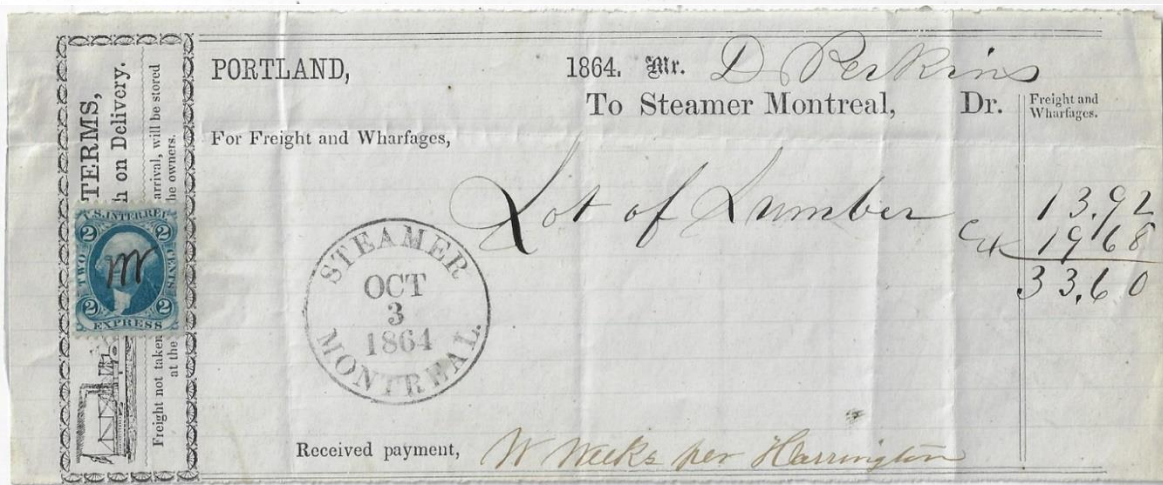 TERMS,
h on Delivery.
arrival, will be stored
he owners.
Freight not taken
at the
U.S. INTER. REV.
2 2
TWO CENTS
2 2
EXPRESS
PORTLAND, 1864. Mr. D Perkins
To Steamer Montreal, Dr.
Freight and
Wharfages.
For Freight and Wharfages,
Lot of Lumber 13.92
19 68
33.60
STEAMER
OCT
3
1864
MONTREAL.
Received payment, W Weeks per Harrington